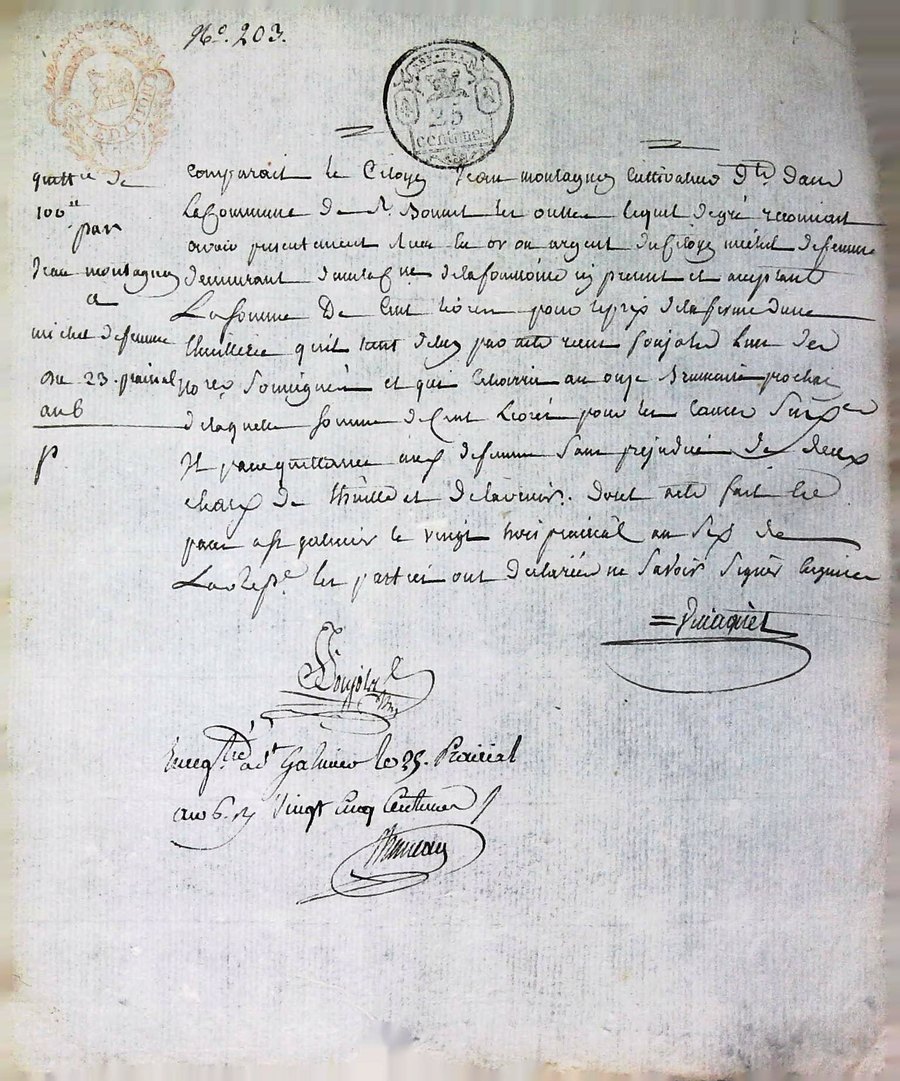 No. 203.
25
centimes
quitt.ce de
100 ll
par
Jean montagney
a
michel defemme
du 23. prairial
an 6
p
Comparait le Citoyen Jean montagney Cultivateur dt. dans
La Commune de St. Bonnet les oulles lequel de gré reconnait
avoir presentement reçu en or ou argent du Citoyen michel defemme
demeurant dans la Cne de la founouse icy present et acceptant
La Somme De Cent livres pour le prix de la ferme dune
thuillerie quil tient de luy par acte reçu Sonjolz l'un des
nores Soussignés et qui echoirra au onze Brumaire prochain
de laquelle Somme de Cent Livres pour les causes
Il passe quittance aux defemme Sans prejudice de deux
chars de thuille et de lavenir. dont acte fait lu
passé a St galmier le vingt trois prairial an Six de
La Rep.e les parties ont declarées ne Savoir Signer
Sonjolz
Enreg.tré a St Galmier le 25. Prairial
an 6. Vingt Cinq Centimes